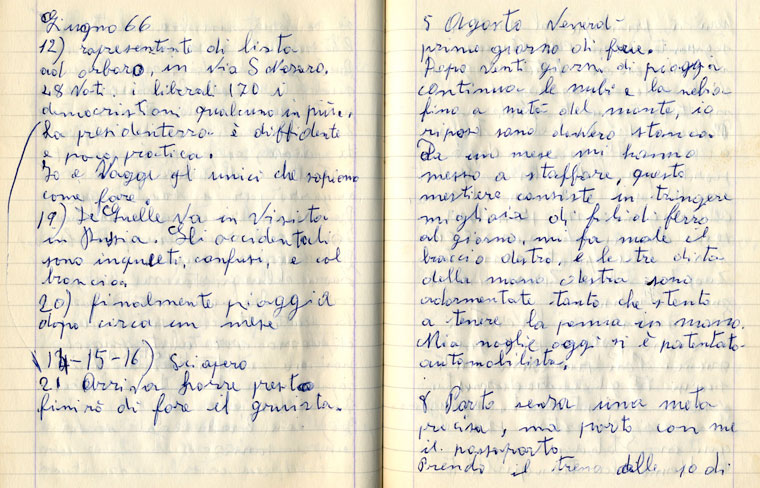 Giugno 66
12) rapresentente di lista
ad orboro, in via S Nazaro.
28 Voti, i liberali 170 i
democristoni qualcuno in più.
La presidentessa è diffidente
e poco pratica.
Io e Vaggi gli unici che sapiamo
come fare.
19) De Gualle va in visita
in Russia. Gli occidentali
sono inquieti, confusi, e col
broncio.
20) finalmente pioggia
dopo circa un mese
14-15-16) Sciopero
21 Arriva presto
finirò di fare il gruista.
5 Agosto Venerdì
primo giorno di ferie.
Dopo venti giorni di pioggia
continua le nubi e la nebia
fino a metà del monte, io
riposo sono davvero stanco.
Da un mese mi hanno
messo a staffare, questo
mestiere consiste in stringere
migliaia di fili di ferro
al giorno, mi fa male il
braccio destro, e le tre dita
della mano destra sono
adormentate tanto che stento
a tenere la penna in mano.
Mia moglie oggi si è patentata
automobilista.
8 Parto senza una meta
precisa, ma porto con me
il passaporto
Prendo il treno delle 10 di